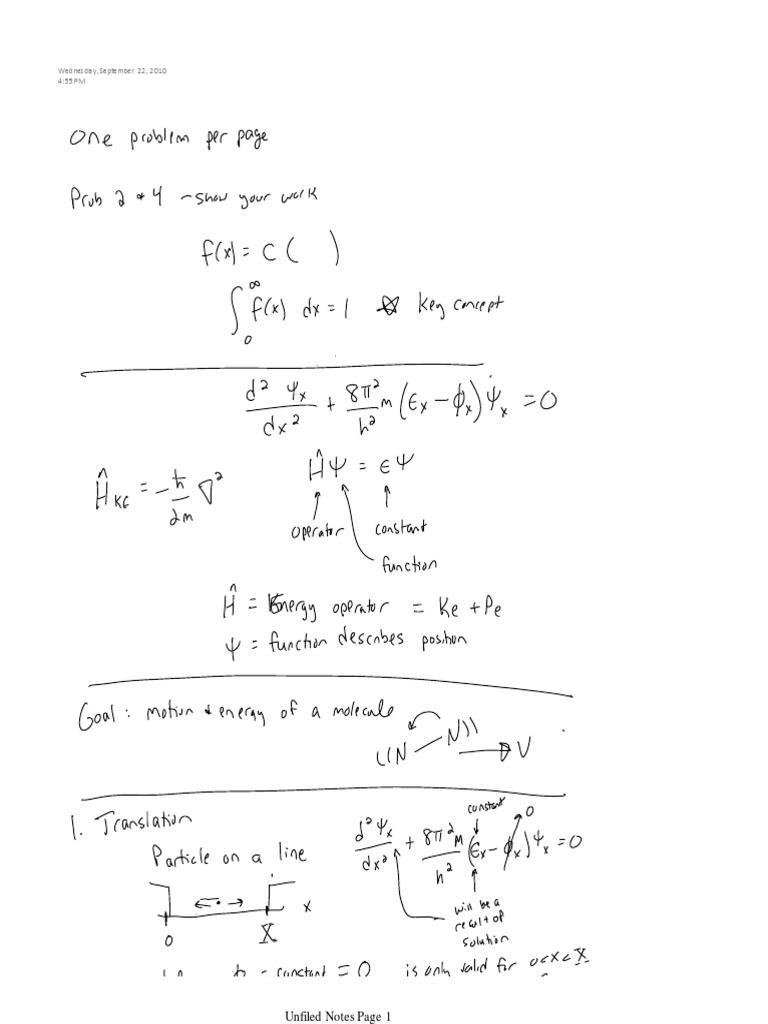 Wednesday, September 22, 2010
4:55 PM
One problem per page
Prob 2 + 4 - show your work
f(x) = C ( )
∫₀^∞ f(x) dx = 1 ☆ key concept
d² Ψₓ / dx² + 8π²/h² m (εₓ - ϕₓ) Ψₓ = 0
Ĥ Ψ = ε Ψ
Ĥ_KE = - ħ/2m ∇²
operator constant
function
Ĥ = Energy operator = Ke + Pe
Ψ = function describes position
Goal: motion & energy of a molecule
((N — N)) → V
1. Translation
constant
0
d² Ψₓ / dx² + 8π² m / h² (εₓ - ϕₓ) Ψₓ = 0
Particle on a line
x
0 X
will be a
result of
solution
- constant = 0 is only valid for 0<x<X
Unfiled Notes Page 1